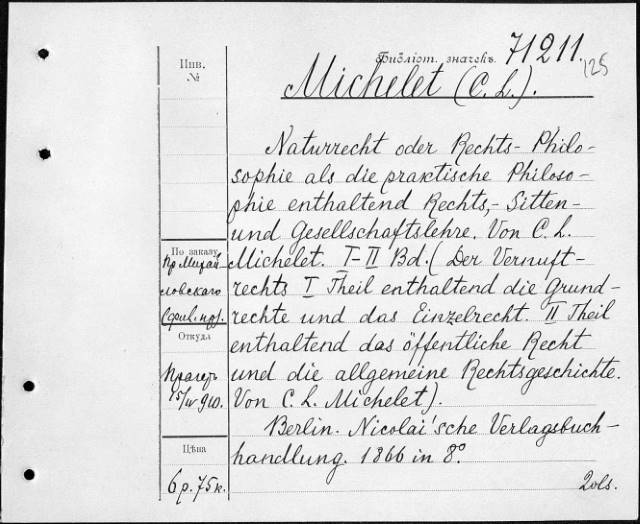 Инв. №
Библіот. значекъ. 71211.
125
Michelet (C. L.).
Naturrecht oder Rechts-Philo-
sophie als die praktische Philoso-
phie enthaltend Rechts,- Sitten-
und Gesellschaftslehre. Von C. L.
Michelet. I-II Bd. (Der Vernuft-
rechts I Theil enthaltend die Grund-
rechte und das Einzelrecht. II Theil
enthaltend das öffentliche Recht
und die allgemeine Rechtsgeschichte.
Von C. L. Michelet).
Berlin. Nicolai'sche Verlagsbuch-
handlung. 1866 in 8º.
2 vols.
По заказу
пр. Михай
ловскаго
Откуда
Прагеръ
15/IV 910.
Цѣна
6 р. 75 к.